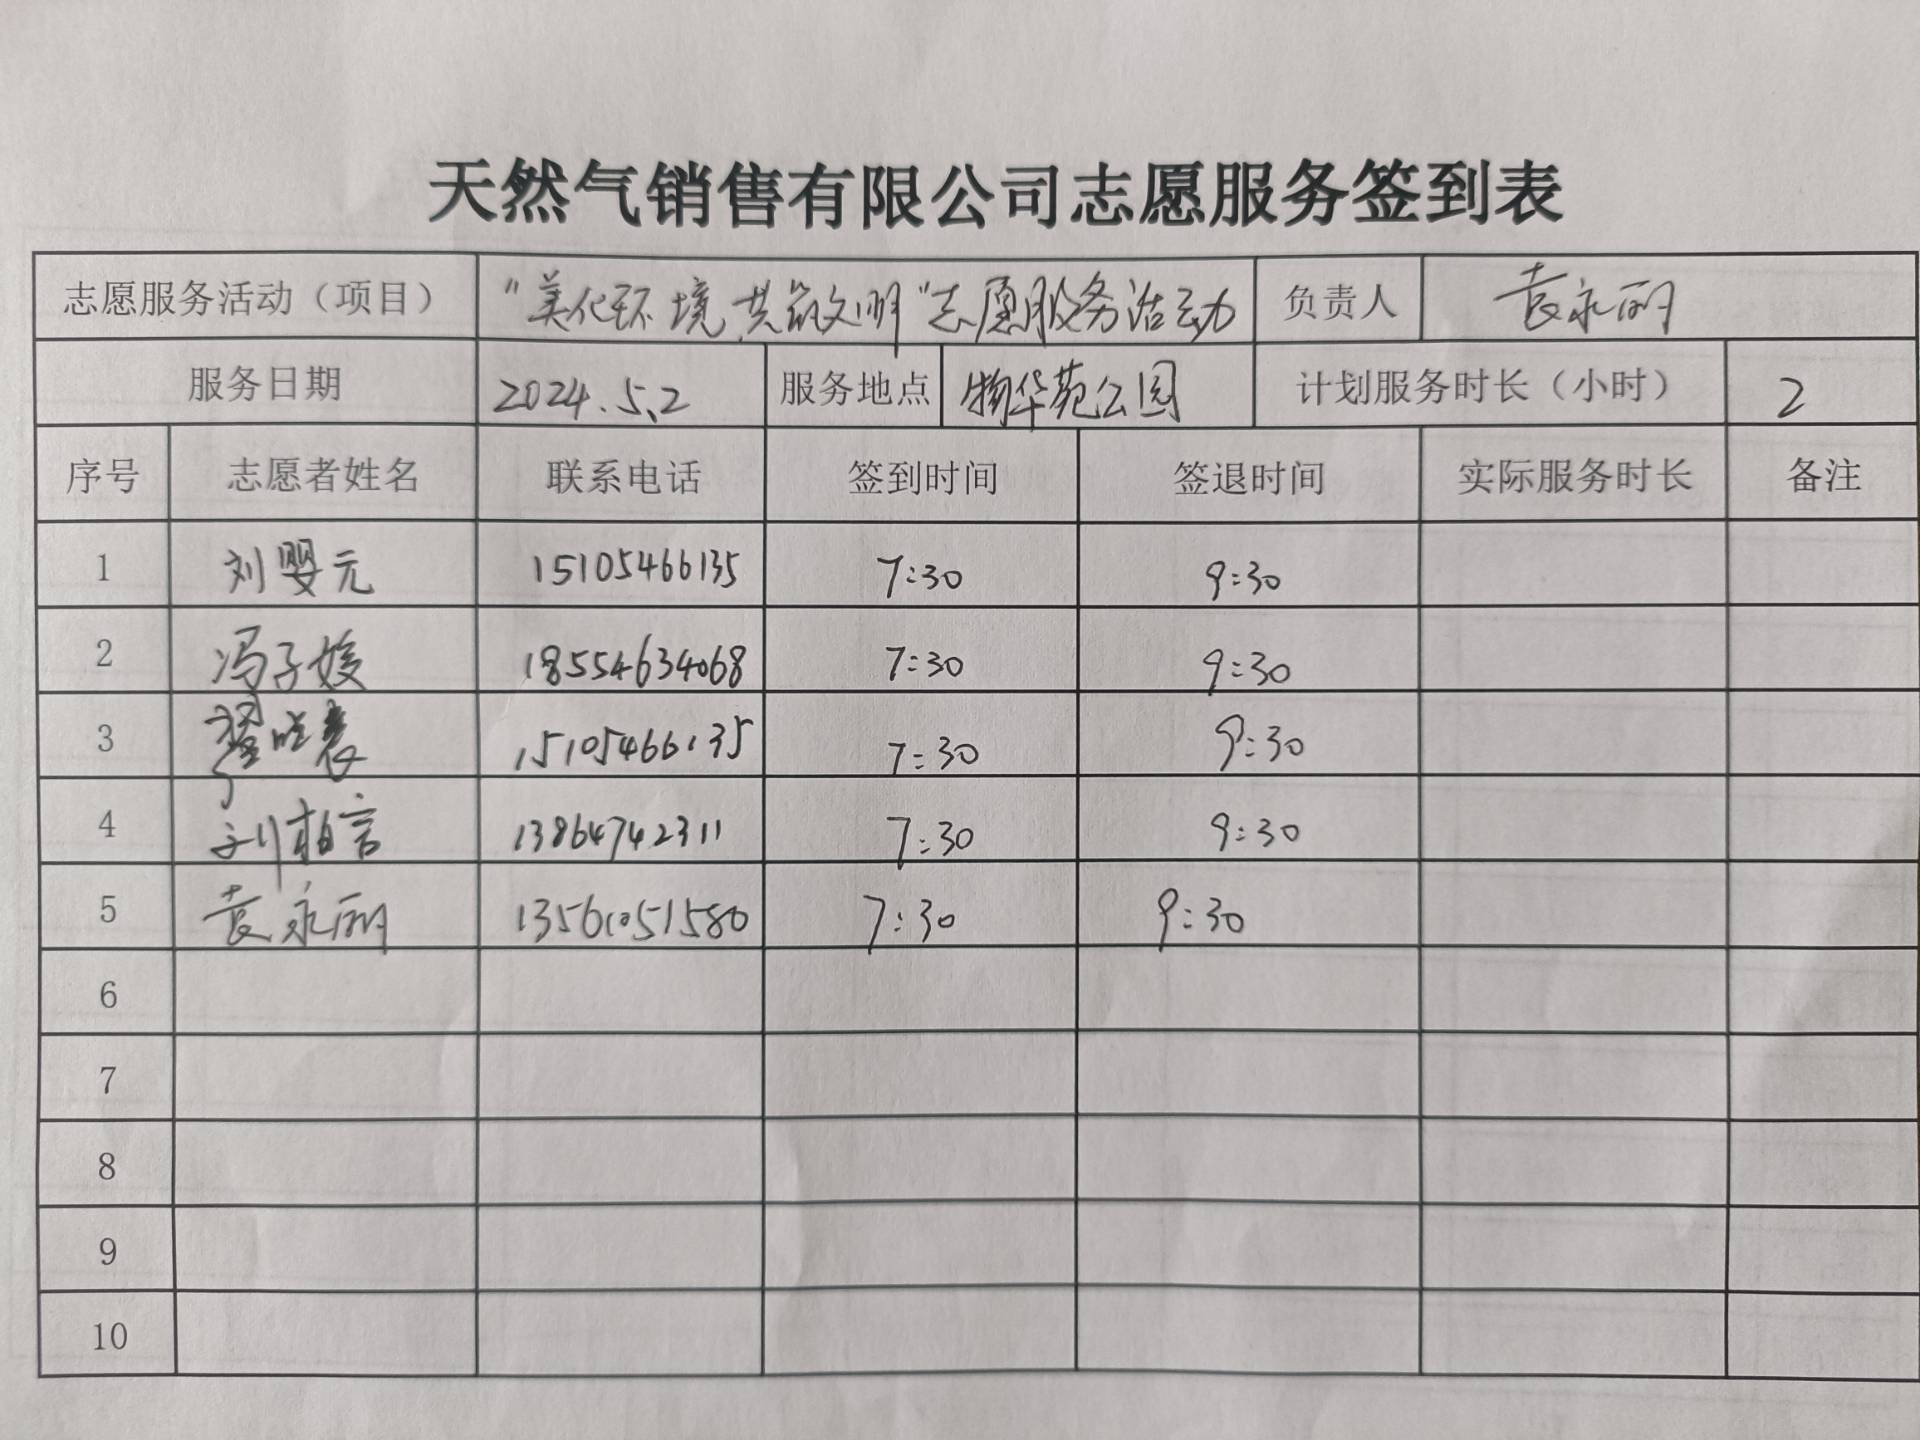 天然气销售有限公司志愿服务签到表
志愿服务活动（项目） "美化环境 共筑文明"志愿服务活动 负责人 袁永丽
服务日期 2024.5.2 服务地点 物华苑公园 计划服务时长（小时） 2
序号 志愿者姓名 联系电话 签到时间 签退时间 实际服务时长 备注
1 刘婴元 15105466135 7:30 9:30
2 冯子媛 18554634068 7:30 9:30
3 15105466135 7:30 9:30
4 刘柏言 13864742311 7:30 9:30
5 袁永丽 13561051580 7:30 9:30
6
7
8
9
10